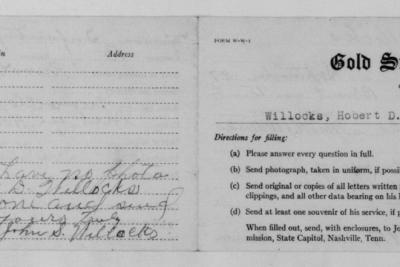 in
Address
have no Photo
D. Willocks
one and send
yours truly
John S. Willocks
FORM W-W-1
Gold S
Willocks, Hobert D.
Directions for filling:
(a) Please answer every question in full.
(b) Send photograph, taken in uniform, if possi
(c) Send original or copies of all letters written
clippings, and all other data bearing on his
(d) Send at least one souvenir of his service, if p
When filled out, send, with enclosures, to Jo
mission, State Capitol, Nashville, Tenn.